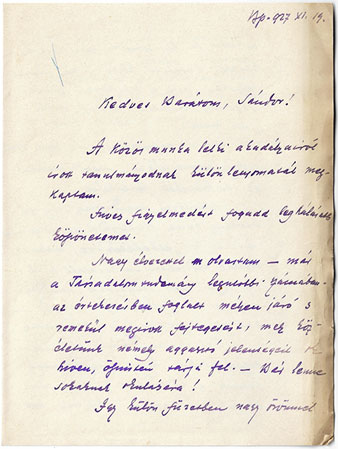 Bp. 927 XI. 19.
Kedves Barátom, Sándor!
A közös munka lelki akadályairól
írott tanulmányodnak különlenyomatát meg-
kaptam.
Szives figyelmedért fogadd leghálásabb
köszönetemet.
Nagy élvezettel olvastam — már
a Társadalomtudomány legutóbbi számában
az értekezésben foglalt mélyen járó s
remekül megírott fejtegetését, mely köz-
életünk némely aggasztó jelenségeit
híven, őszintén tárja fel. — Bár lenne
sokaknak okulására!
Így külön füzetben nagy örömmel